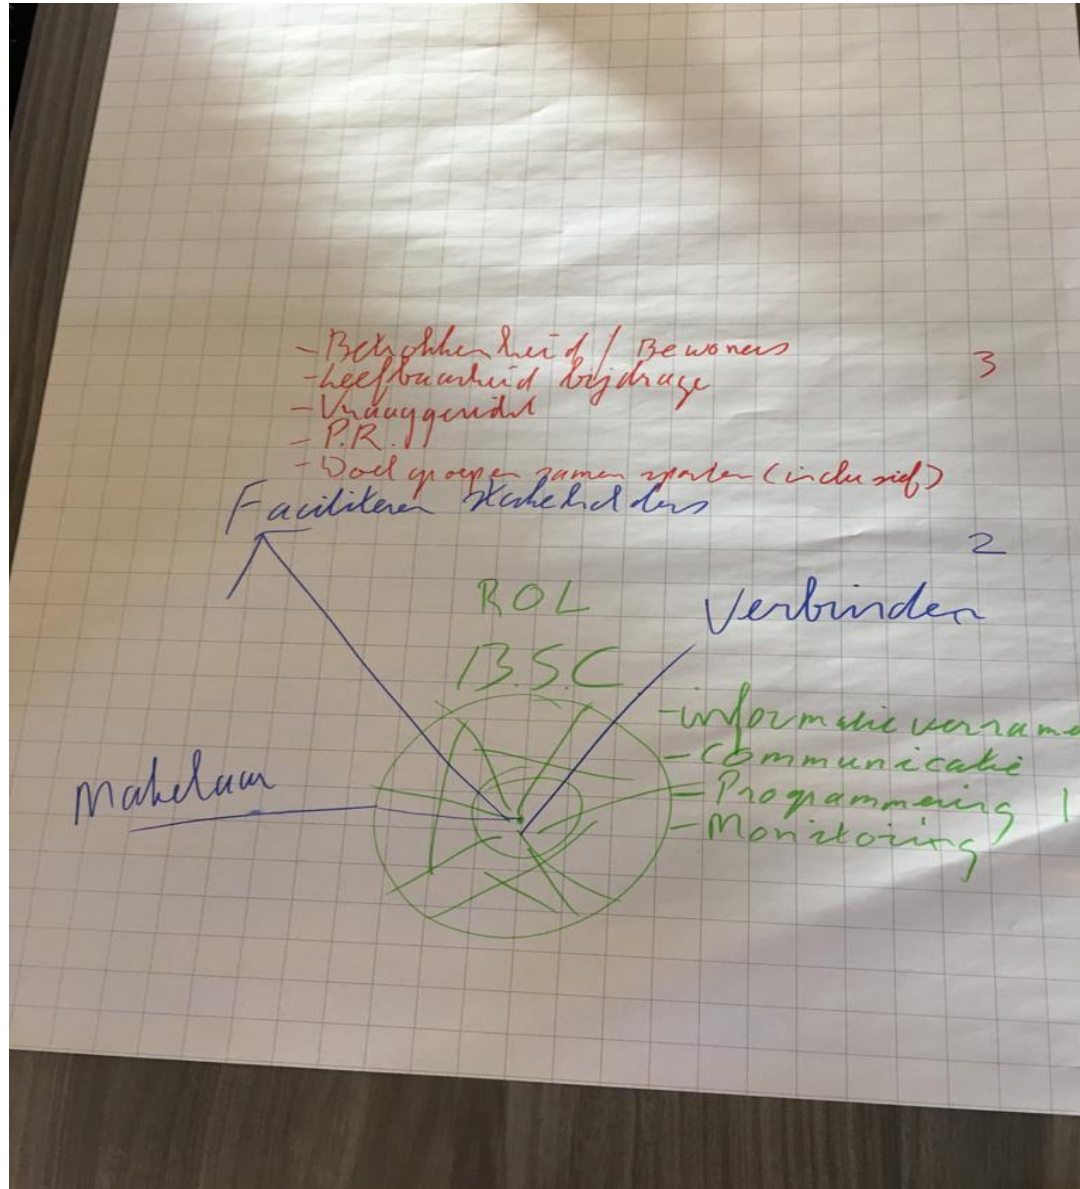 - Betrokkenheid / Bewoners
3
- Leefbaarheid bijdrage
- Vraaggericht
- P.R.
- Doelgroepen samen sporten (inclusief)
Faciliteren stakeholders
2
ROL
Verbinden
B.S.C
- informatie
- Communicatie
Makelaar
- Programmering
1
- Monitoring